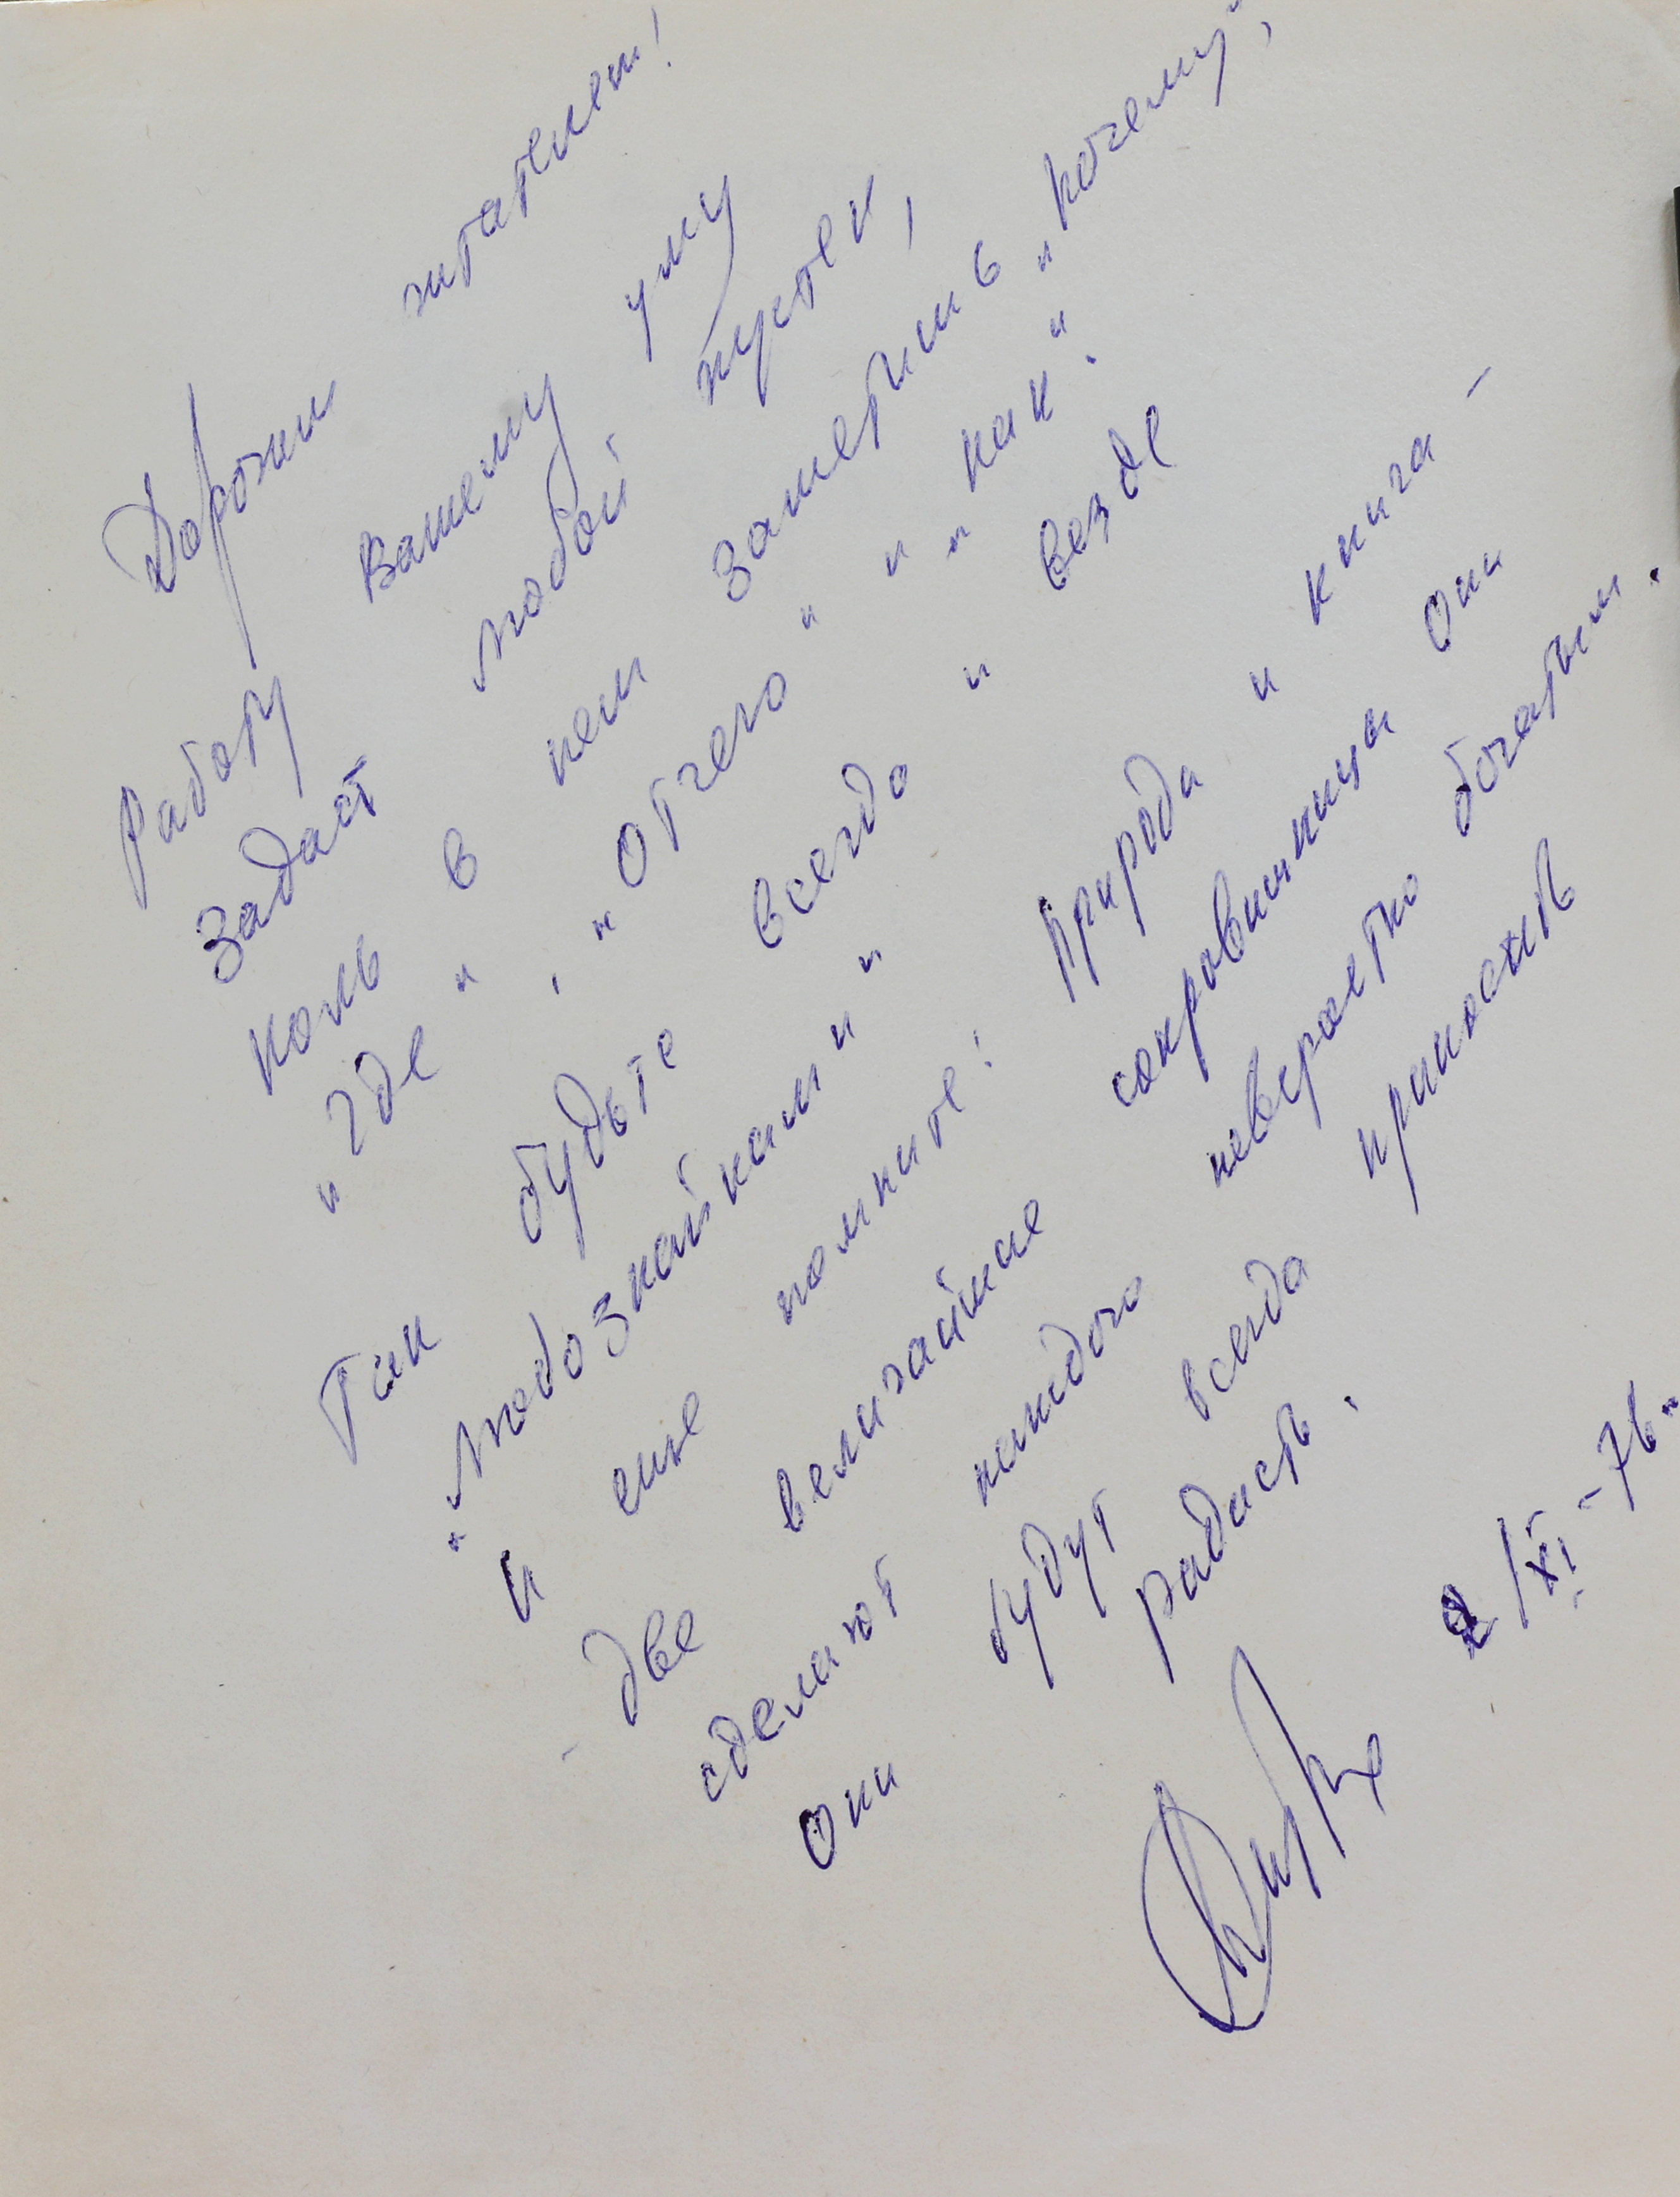 Дорогим читателям!
Работу Вашему уму
задаст любой пустяк,
Коль в нем заметишь „почему",
„где", „отчего" и „как".
Так будьте всегда и везде
„Любознайками"
И еще помните: Природа и книга –
– две величайшие сокровищницы Они
сделают каждого невероятно богатым.
Они будут всегда приносить
радость.
2/XI – 76.